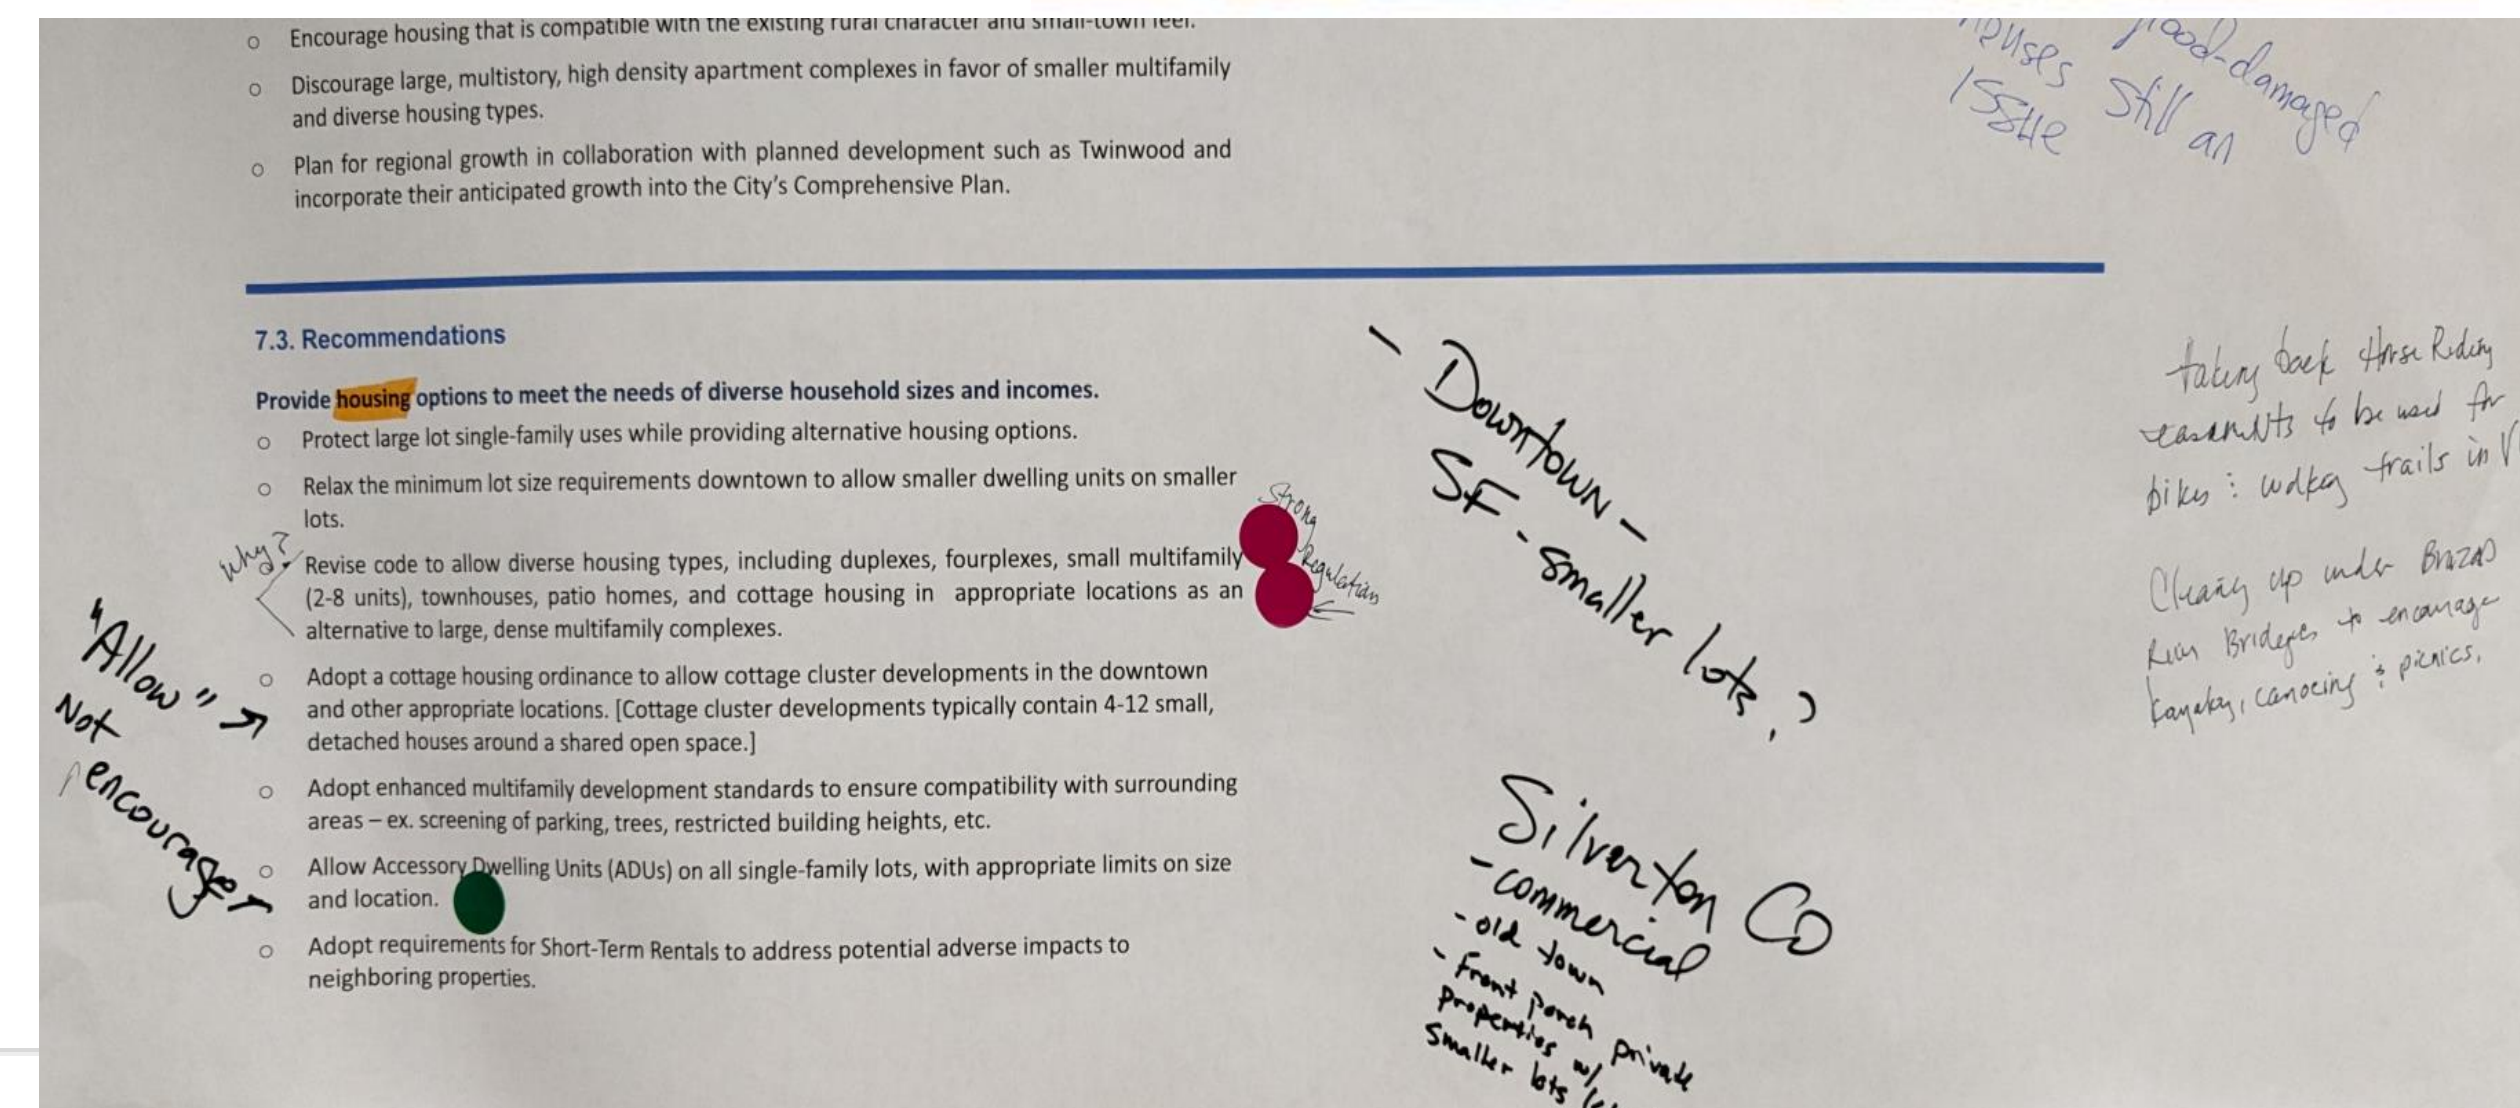 Encourage housing that is compatible with the existing rural character and small-town feel.
Discourage large, multistory, high density apartment complexes in favor of smaller multifamily
and diverse housing types.
Plan for regional growth in collaboration with planned development such as Twinwood and
incorporate their anticipated growth into the City's Comprehensive Plan.
flood-damaged
houses still an
issue
7.3. Recommendations
Provide housing options to meet the needs of diverse household sizes and incomes.
Protect large lot single-family uses while providing alternative housing options.
Relax the minimum lot size requirements downtown to allow smaller dwelling units on smaller
lots.
Why?
Revise code to allow diverse housing types, including duplexes, fourplexes, small multifamily
(2-8 units), townhouses, patio homes, and cottage housing in appropriate locations as an
alternative to large, dense multifamily complexes.
Strong
Regulation
"Allow" →
Not
encourage
Adopt a cottage housing ordinance to allow cottage cluster developments in the downtown
and other appropriate locations. [Cottage cluster developments typically contain 4-12 small,
detached houses around a shared open space.]
Adopt enhanced multifamily development standards to ensure compatibility with surrounding
areas – ex. screening of parking, trees, restricted building heights, etc.
Allow Accessory Dwelling Units (ADUs) on all single-family lots, with appropriate limits on size
and location.
Adopt requirements for Short-Term Rentals to address potential adverse impacts to
neighboring properties.
- Downtown -
SF - smaller lots,?
Silverton CO
- commercial
- old town
- Front porch private
properties w/
smaller lots
taking back Horse Riding
easements to be used for
bikes & walking trails in
Cleaning up under Brazos
River Bridges to encourage
kayaking, canoeing & picnics,